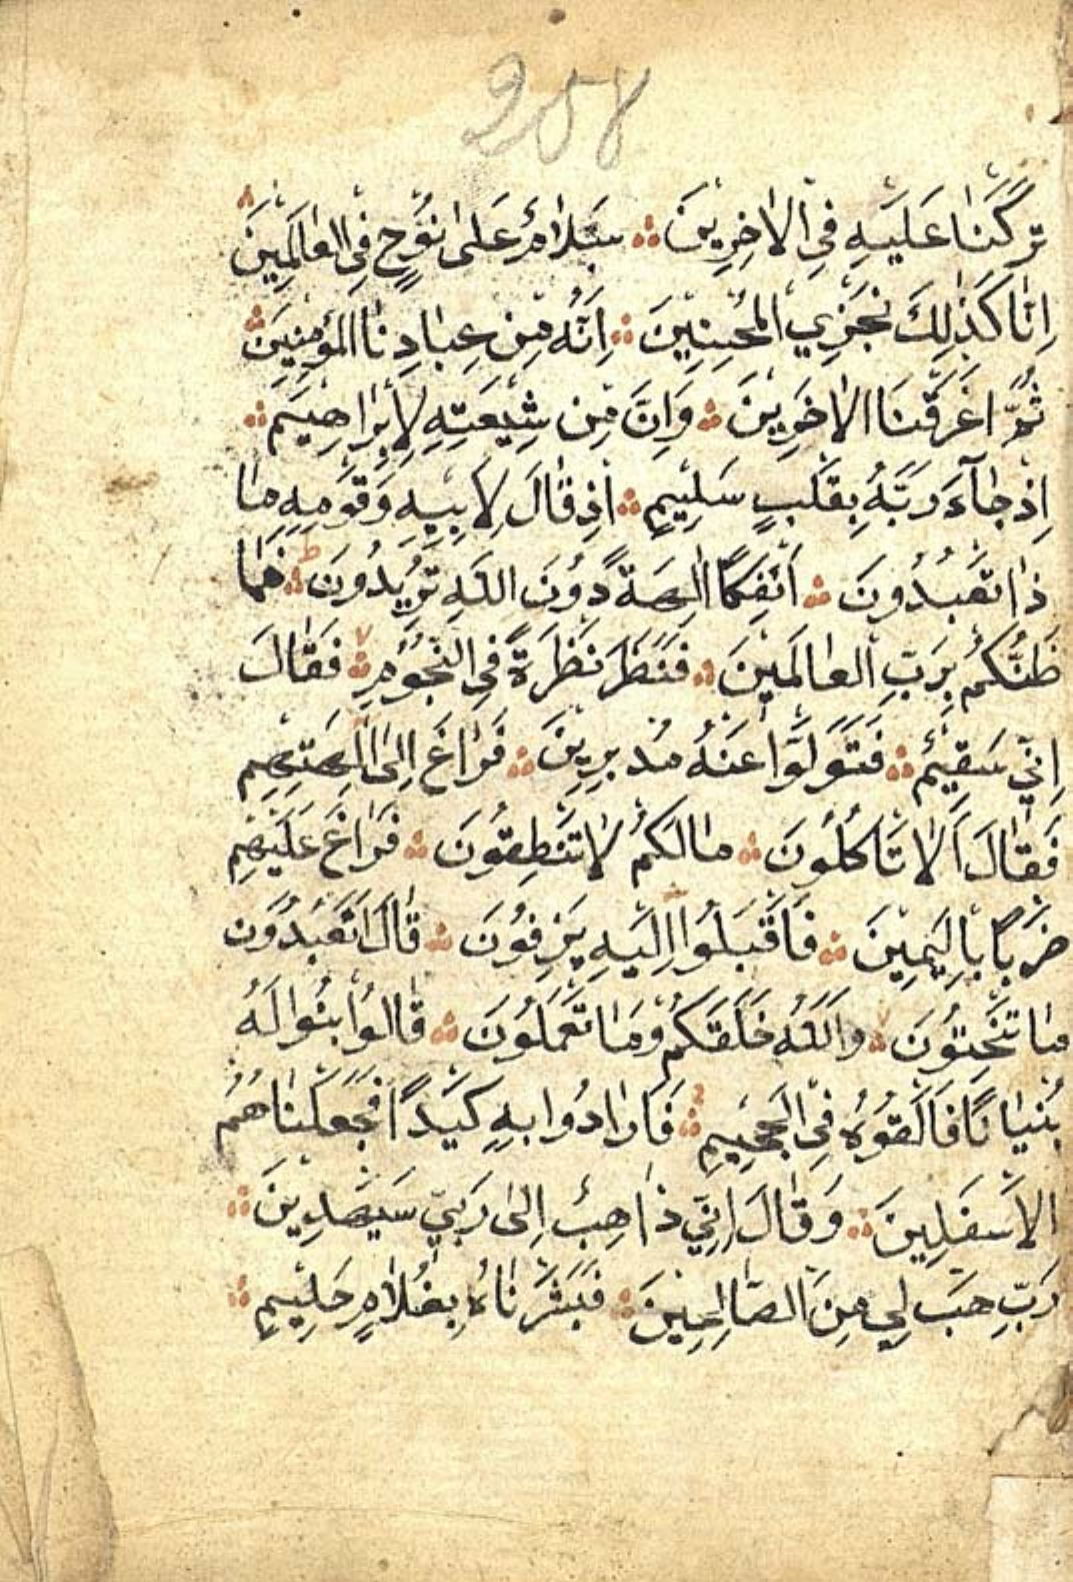 258
تَرَكْنَا عَلَيْهِ فِي الْاٰخِرِينَ سَلَامٌ عَلٰى نُوحٍ فِي الْعَالَمِينَ
اِنَّا كَذٰلِكَ نَجْزِي الْمُحْسِنِينَ اِنَّهُ مِنْ عِبَادِنَا الْمُؤْمِنِينَ
ثُمَّ اَغْرَقْنَا الْاٰخَرِينَ وَاِنَّ مِنْ شِيعَتِهِ لَاِبْرَاهِيمَ
اِذْ جَآءَ رَبَّهُ بِقَلْبٍ سَلِيمٍ اِذْ قَالَ لِاَبِيهِ وَقَوْمِهِ مَا
ذَا تَعْبُدُونَ اَئِفْكًا اٰلِهَةً دُونَ اللّٰهِ تُرِيدُونَ فَمَا
ظَنُّكُمْ بِرَبِّ الْعَالَمِينَ فَنَظَرَ نَظْرَةً فِي النُّجُومِ فَقَالَ
اِنِّي سَقِيمٌ فَتَوَلَّوْا عَنْهُ مُدْبِرِينَ فَرَاغَ اِلٰى اٰلِهَتِهِمْ
فَقَالَ اَلَا تَاْكُلُونَ مَا لَكُمْ لَا تَنْطِقُونَ فَرَاغَ عَلَيْهِمْ
ضَرْبًا بِالْيَمِينِ فَاَقْبَلُوا اِلَيْهِ يَزِفُّونَ قَالَ اَتَعْبُدُونَ
مَا تَنْحِتُونَ وَاللّٰهُ خَلَقَكُمْ وَمَا تَعْمَلُونَ قَالُوا ابْنُوا لَهُ
بُنْيَانًا فَاَلْقُوهُ فِي الْجَحِيمِ فَاَرَادُوا بِهِ كَيْدًا فَجَعَلْنَاهُمُ
الْاَسْفَلِينَ وَقَالَ اِنِّي ذَاهِبٌ اِلٰى رَبِّي سَيَهْدِينِ
رَبِّ هَبْ لِي مِنَ الصَّالِحِينَ فَبَشَّرْنَاهُ بِغُلَامٍ حَلِيمٍ